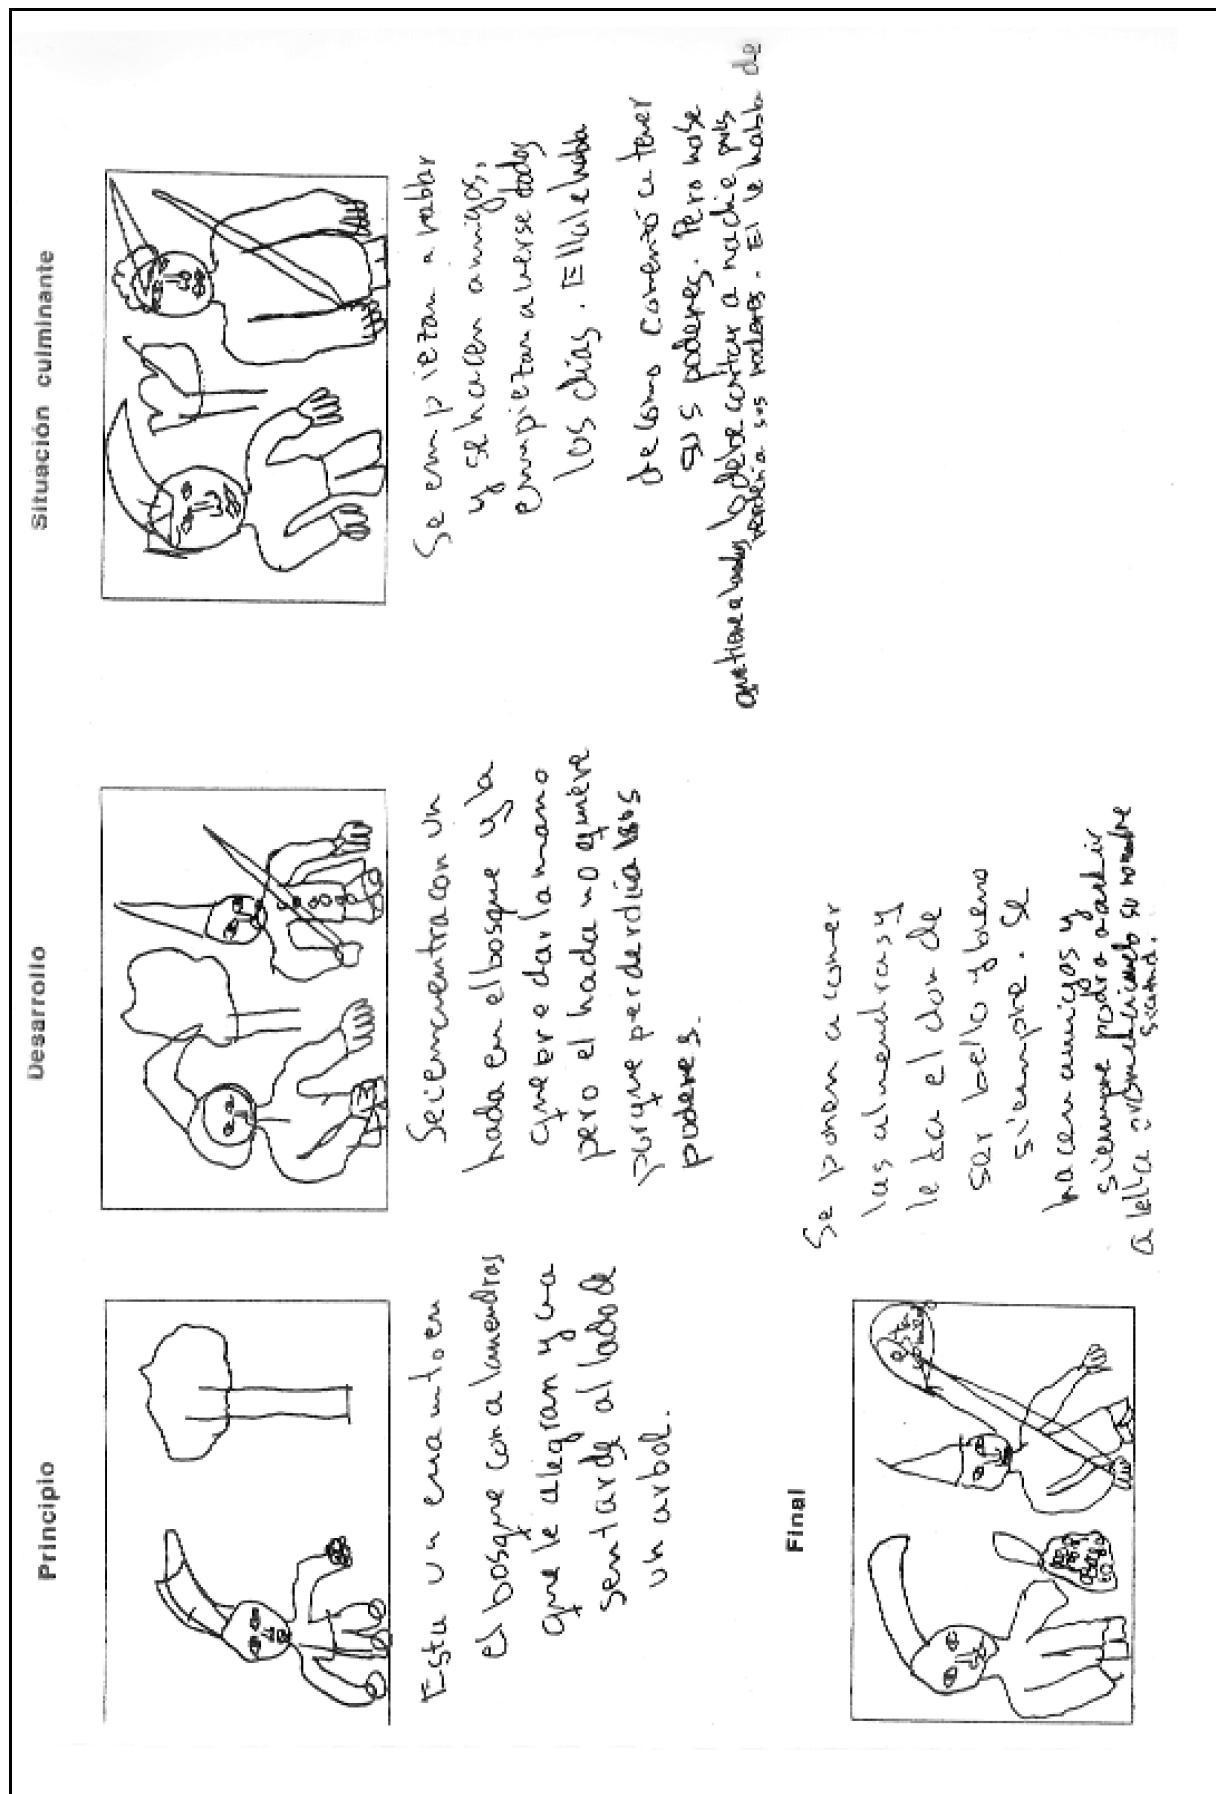 Principio
Esta un enanito en
el bosque con almendras
que le alegran y va
sentarde al lado de
un arbol.
Desarrollo
Se encuentra con un
hada en el bosque y la
quiere dar la mano
pero el hada no quiere
porque perderdiia sus
poderes.
Situación culminante
Se empiezan a hablar
y se hacen amigos,
empiezan a verse todos
los dias. Ella le habla
de como comenzó a tener
sus poderes. Pero no se
lo debe contar a nadie pues
perderia sus poderes. El le habla de
que tiene
Final
Se ponen a comer
las almendras y
le da el don de
ser bello y bueno
siempre. Se
hacen amigos y
siempre podra acudir
a ella su nombre